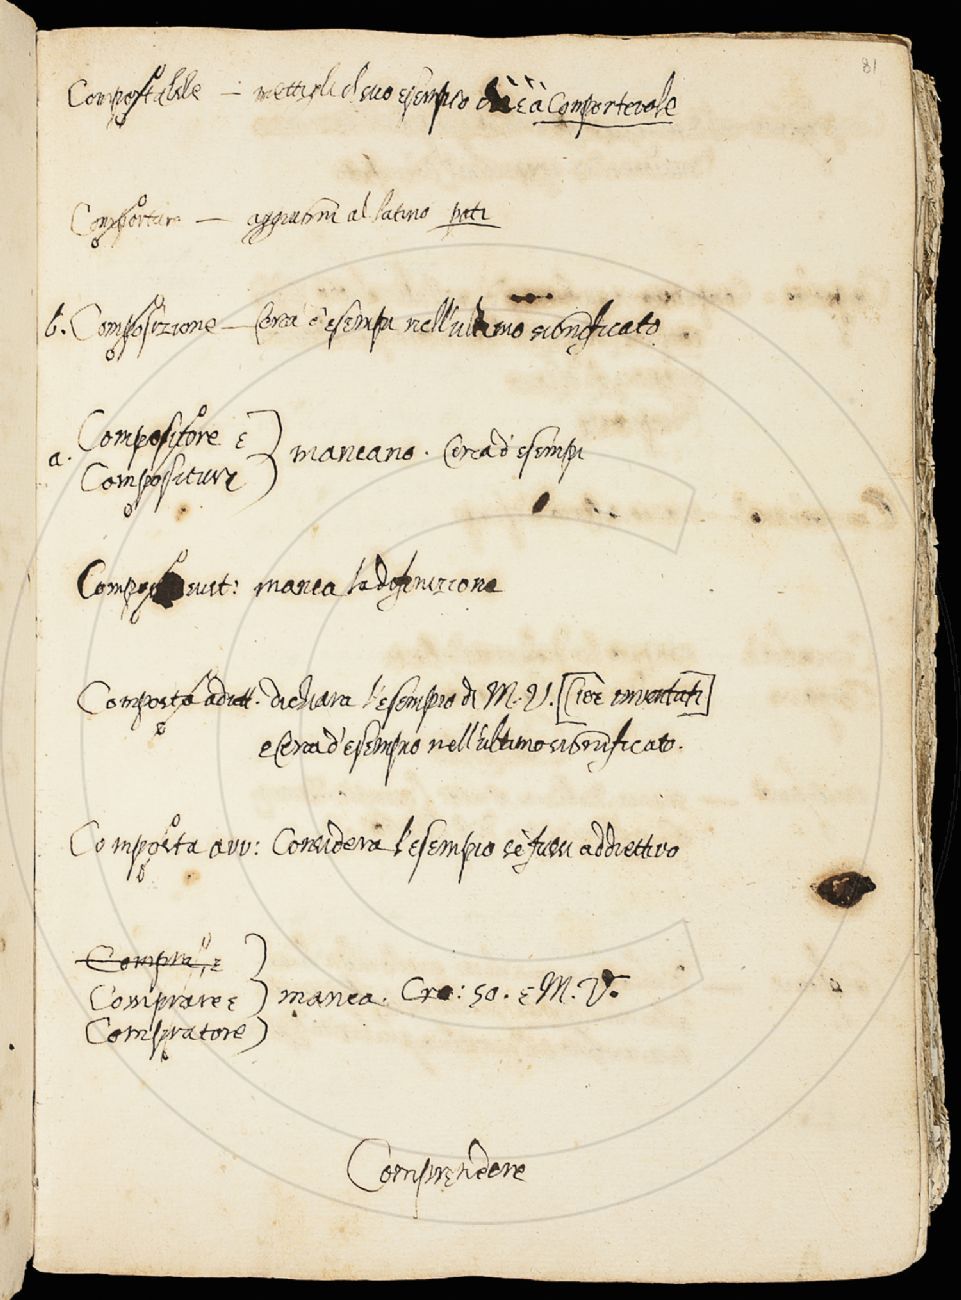 81
Comportabile — mettigli el suo esempio ch'è à Comportevole
Comportare — aggiugni al latino pati
b. Composizione — Cerca d'esempi nell'ultimo significato
Compositore e
a. mancano. Cerca d'esempi
Compositura
Composto sust: manca la definizione
Composto adiett. dichiara l'esempio di M. V. [cioè inventati]
e Cerca d'esempio nell'ultimo significato.
Composta avv: Considera l'esempio se fussi addiettivo
Compra, e
Comprare e manca. Cro: 50. e M. V.
Compratore
Comprendere